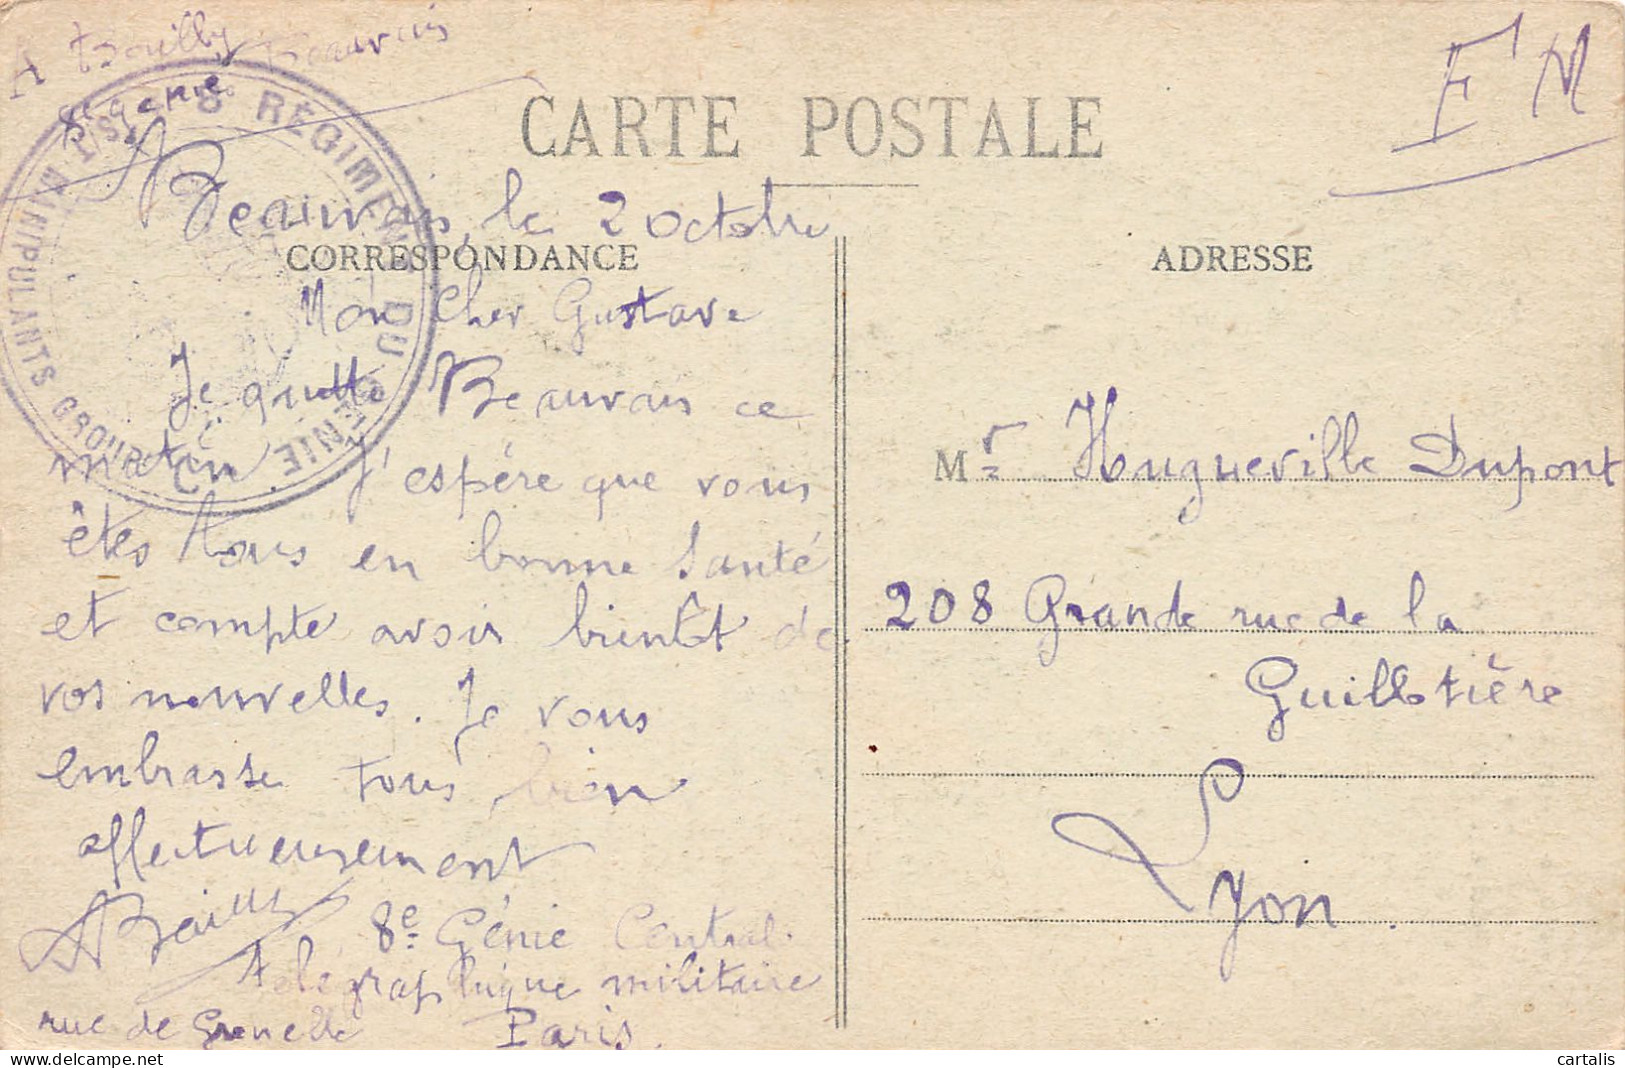 A Bouilly Beauvais
8e génie
F M
CARTE POSTALE
8e RÉGIMENT DU GÉNIE
MANIPULANTS GROUPE
Beauvais, le 2 Octobre
CORRESPONDANCE
Mon Cher Gustave
Je quitte Beauvais ce
matin. J'espère que vous
êtes tous en bonne santé
et compte avoir bientôt de
vos nouvelles. Je vous
embrasse tous bien
affectueusement
8e Génie Central
Télégraphique militaire
rue de Grenelle Paris.
ADRESSE
Mr Hugueville Dupont
208 Grande rue de la
Guillotière
Lyon.
cartalis